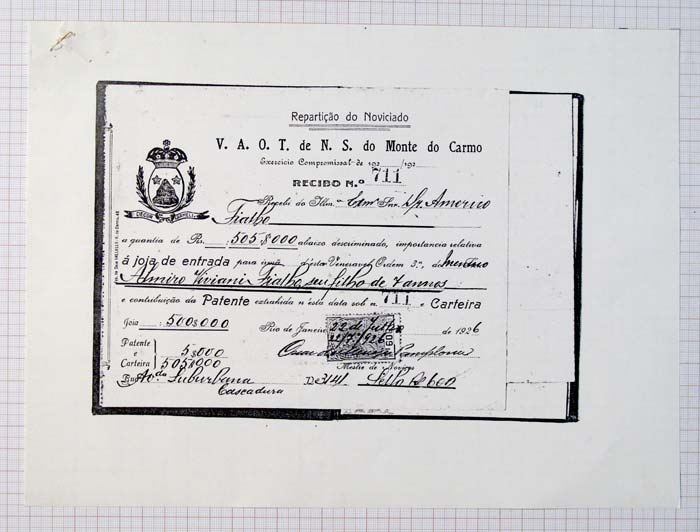 Repartição do Noviciado
V. A. O. T. de N. S. do Monte do Carmo
Exercicio Compromissal de 192 /192
RECIBO N.º 711
Recebi do Illmo. Exmo. Snr. Dr. Americo
Fialho
a quantia de Rs. 505$000 abaixo descriminado, importancia relativa
á joia de entrada para irmã d'esta Veneravel Ordem 3.ª, do menino
Almiro Viviani Fialho, seu filho de 7 annos
e contribuição da Patente extrahida n'esta data sob n. 711 e Carteira
Joia 500$000
Rio de Janeiro 22 de Julho de 1926
22/7/926
Patente e Carteira 5$000
505$000
Pamplona
Mestre de Noviços
Rua Av. da Suburbana N. 3141 Sello Rs 600
Cascadura
DECOR CARMELI